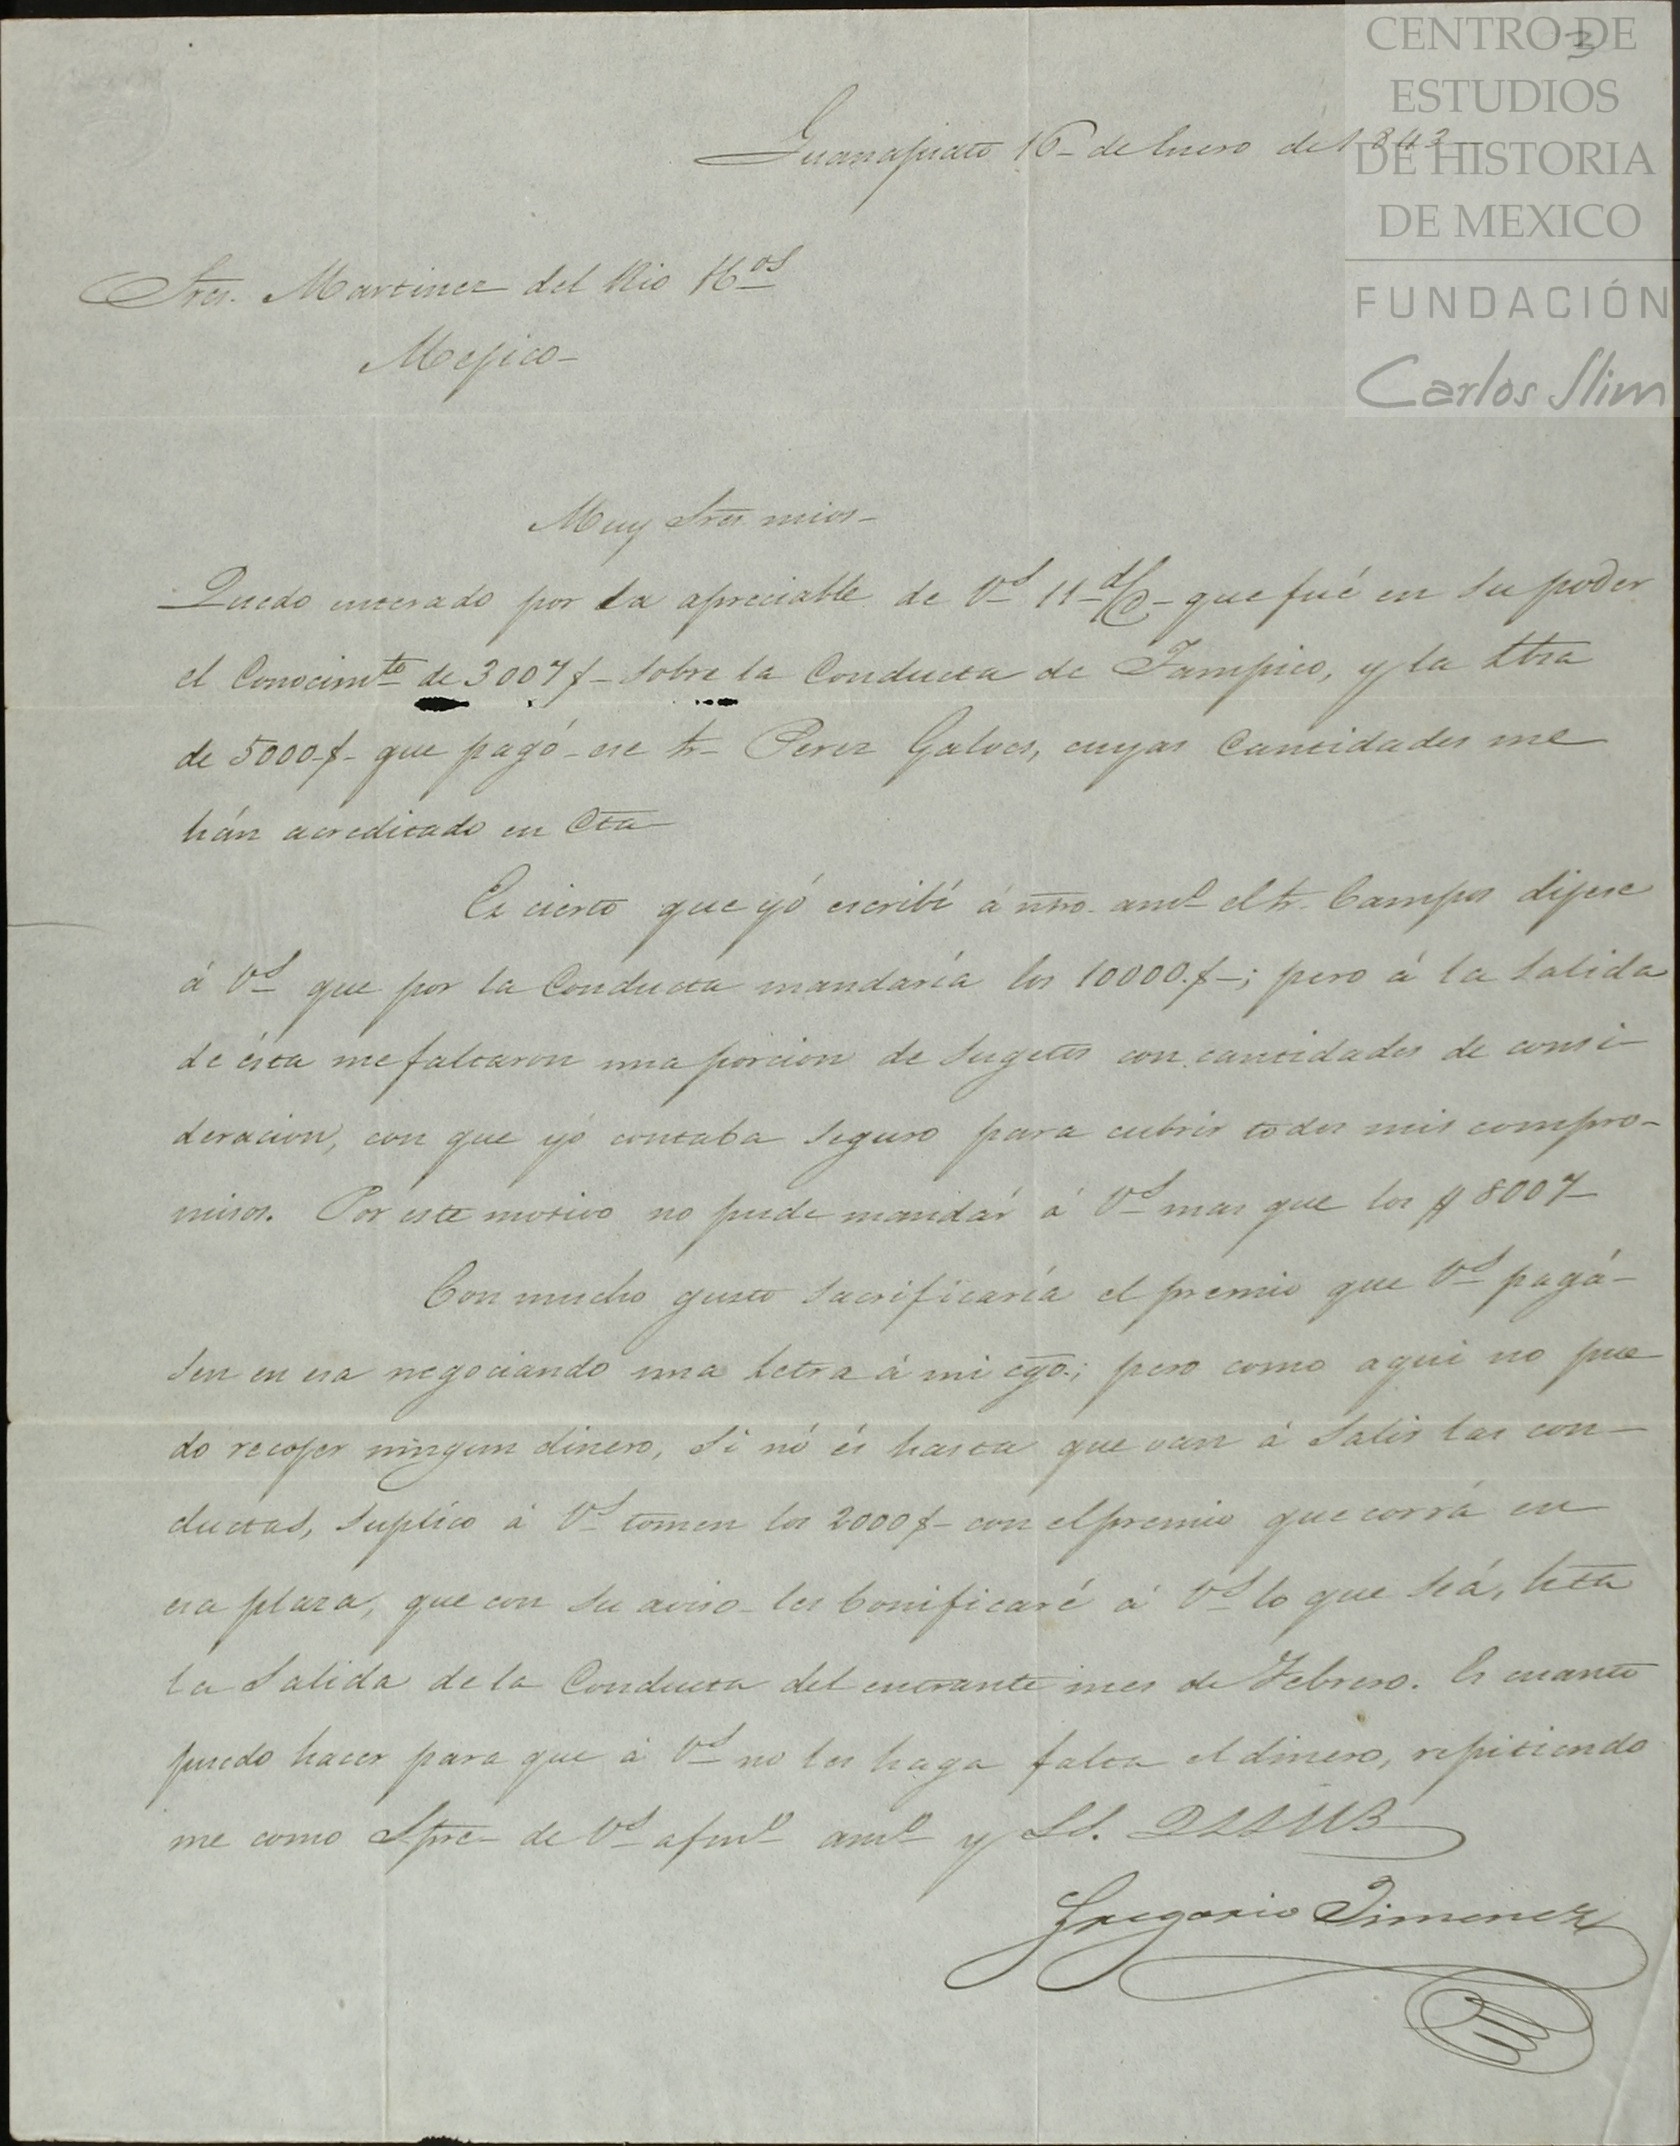 3
CENTRO DE
ESTUDIOS
DE HISTORIA
DE MEXICO
FUNDACIÓN
Carlos Slim
Guanajuato 16- de Enero de 1843-
Sres. Martinez del Rio H.os
Mejico-
Muy Sres mios-
Quedo enterado por la apreciable de Vs 11 d/ que fué en su poder
el Conocimto de 3007 $- sobre la Conducta de Tampico, y la Ltra
de 5000 $- que pagó- ese Sr- Perez Galves, cuyas Cantidades me
hán acreditado en Cta
Es cierto que yó escribí á ntro. amo el Sr. Campos dijese
á Vs que por la Conducta mandaría los 10000 $-; pero á la Salida
de ésta me faltaron una porcion de Sugetos con cantidades de consi-
deracion, con que yó contaba Seguro para cubrir todos mis compro-
misos. Por este motivo no pude mandár á Vs mas que los $ 8007-
Con mucho gusto Sacrificaría el premio que Vs pagá-
sen en esa negociando una Letra á mi cgo.; pero como aqui no pue
do recojer ningun dinero, Si nó és hasta que van á Salir las con-
ductas, Suplíco á Vs tomen los 2000 $- con el premio que corrá en
esa plaza, que con Su aviso- les bonificaré á Vs lo que Seá, hta
la Salida de la Conducta del entrante mes de Febrero. Es cuanto
puedo hacer para que á Vs no les haga falta el dinero, repitiendo
me como Spre- de Vs afmo amo y SS. QSSMB
Gregorio Jimenez